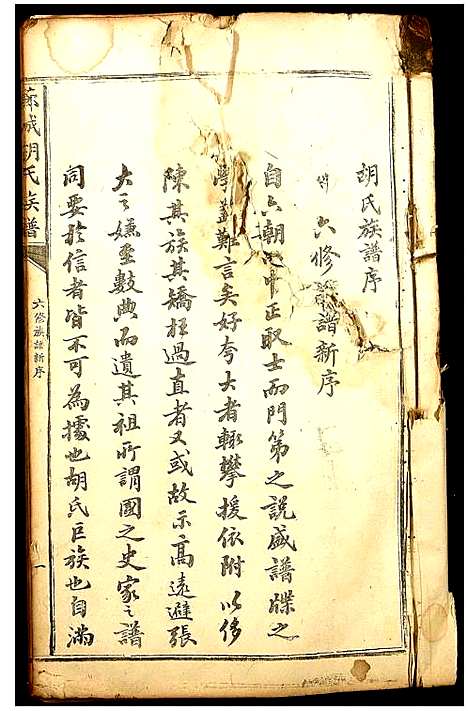 胡氏族譜序
六修族譜新序
自六朝以中正取士而門第之說盛譜牒之
學蓋難言矣好夸大者輒攀援依附以侈
陳其族其矯枉過直者又或故示高遠避張
大之嫌至數典而遺其祖所謂國之史家之譜
同要於信者皆不可為據也胡氏巨族也自滿
城胡氏族譜
六修族譜新序
一